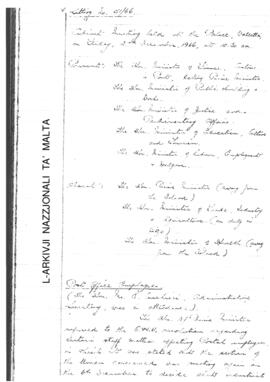 Sitting No. 51/66.
Cabinet Meeting held at the Palace, Valletta
on Friday, 2nd December, 1966, at
Present: The Hon. Minister of Finance, Customs
& Port, Acting Prime Minister
The Hon. Minister of Public Building &
Works.
The Hon. Minister of Justice and
Parliamentary Affairs
The Hon. Minister of Education, Culture
and Tourism.
The Hon. Minister of Labour, Employment
& Welfare.
Absent: The Hon. Prime Minister (away from
the Island)
The Hon. Minister of Trade, Industry
& Agriculture (on duty in
The Hon. Minister of Health (away
from the Island)
Post Office Employees
(The Hon. Mr. Administrative
Secretary, was in attendance)
The Hon. Prime Minister
referred to the G.W.U. resolution regarding
matters affecting Postal employees
It was stated that the section of
the Union concerned was meeting again on
the 6th December to decide
L-ARKIVJI NAZZJONALI TA' MALTA